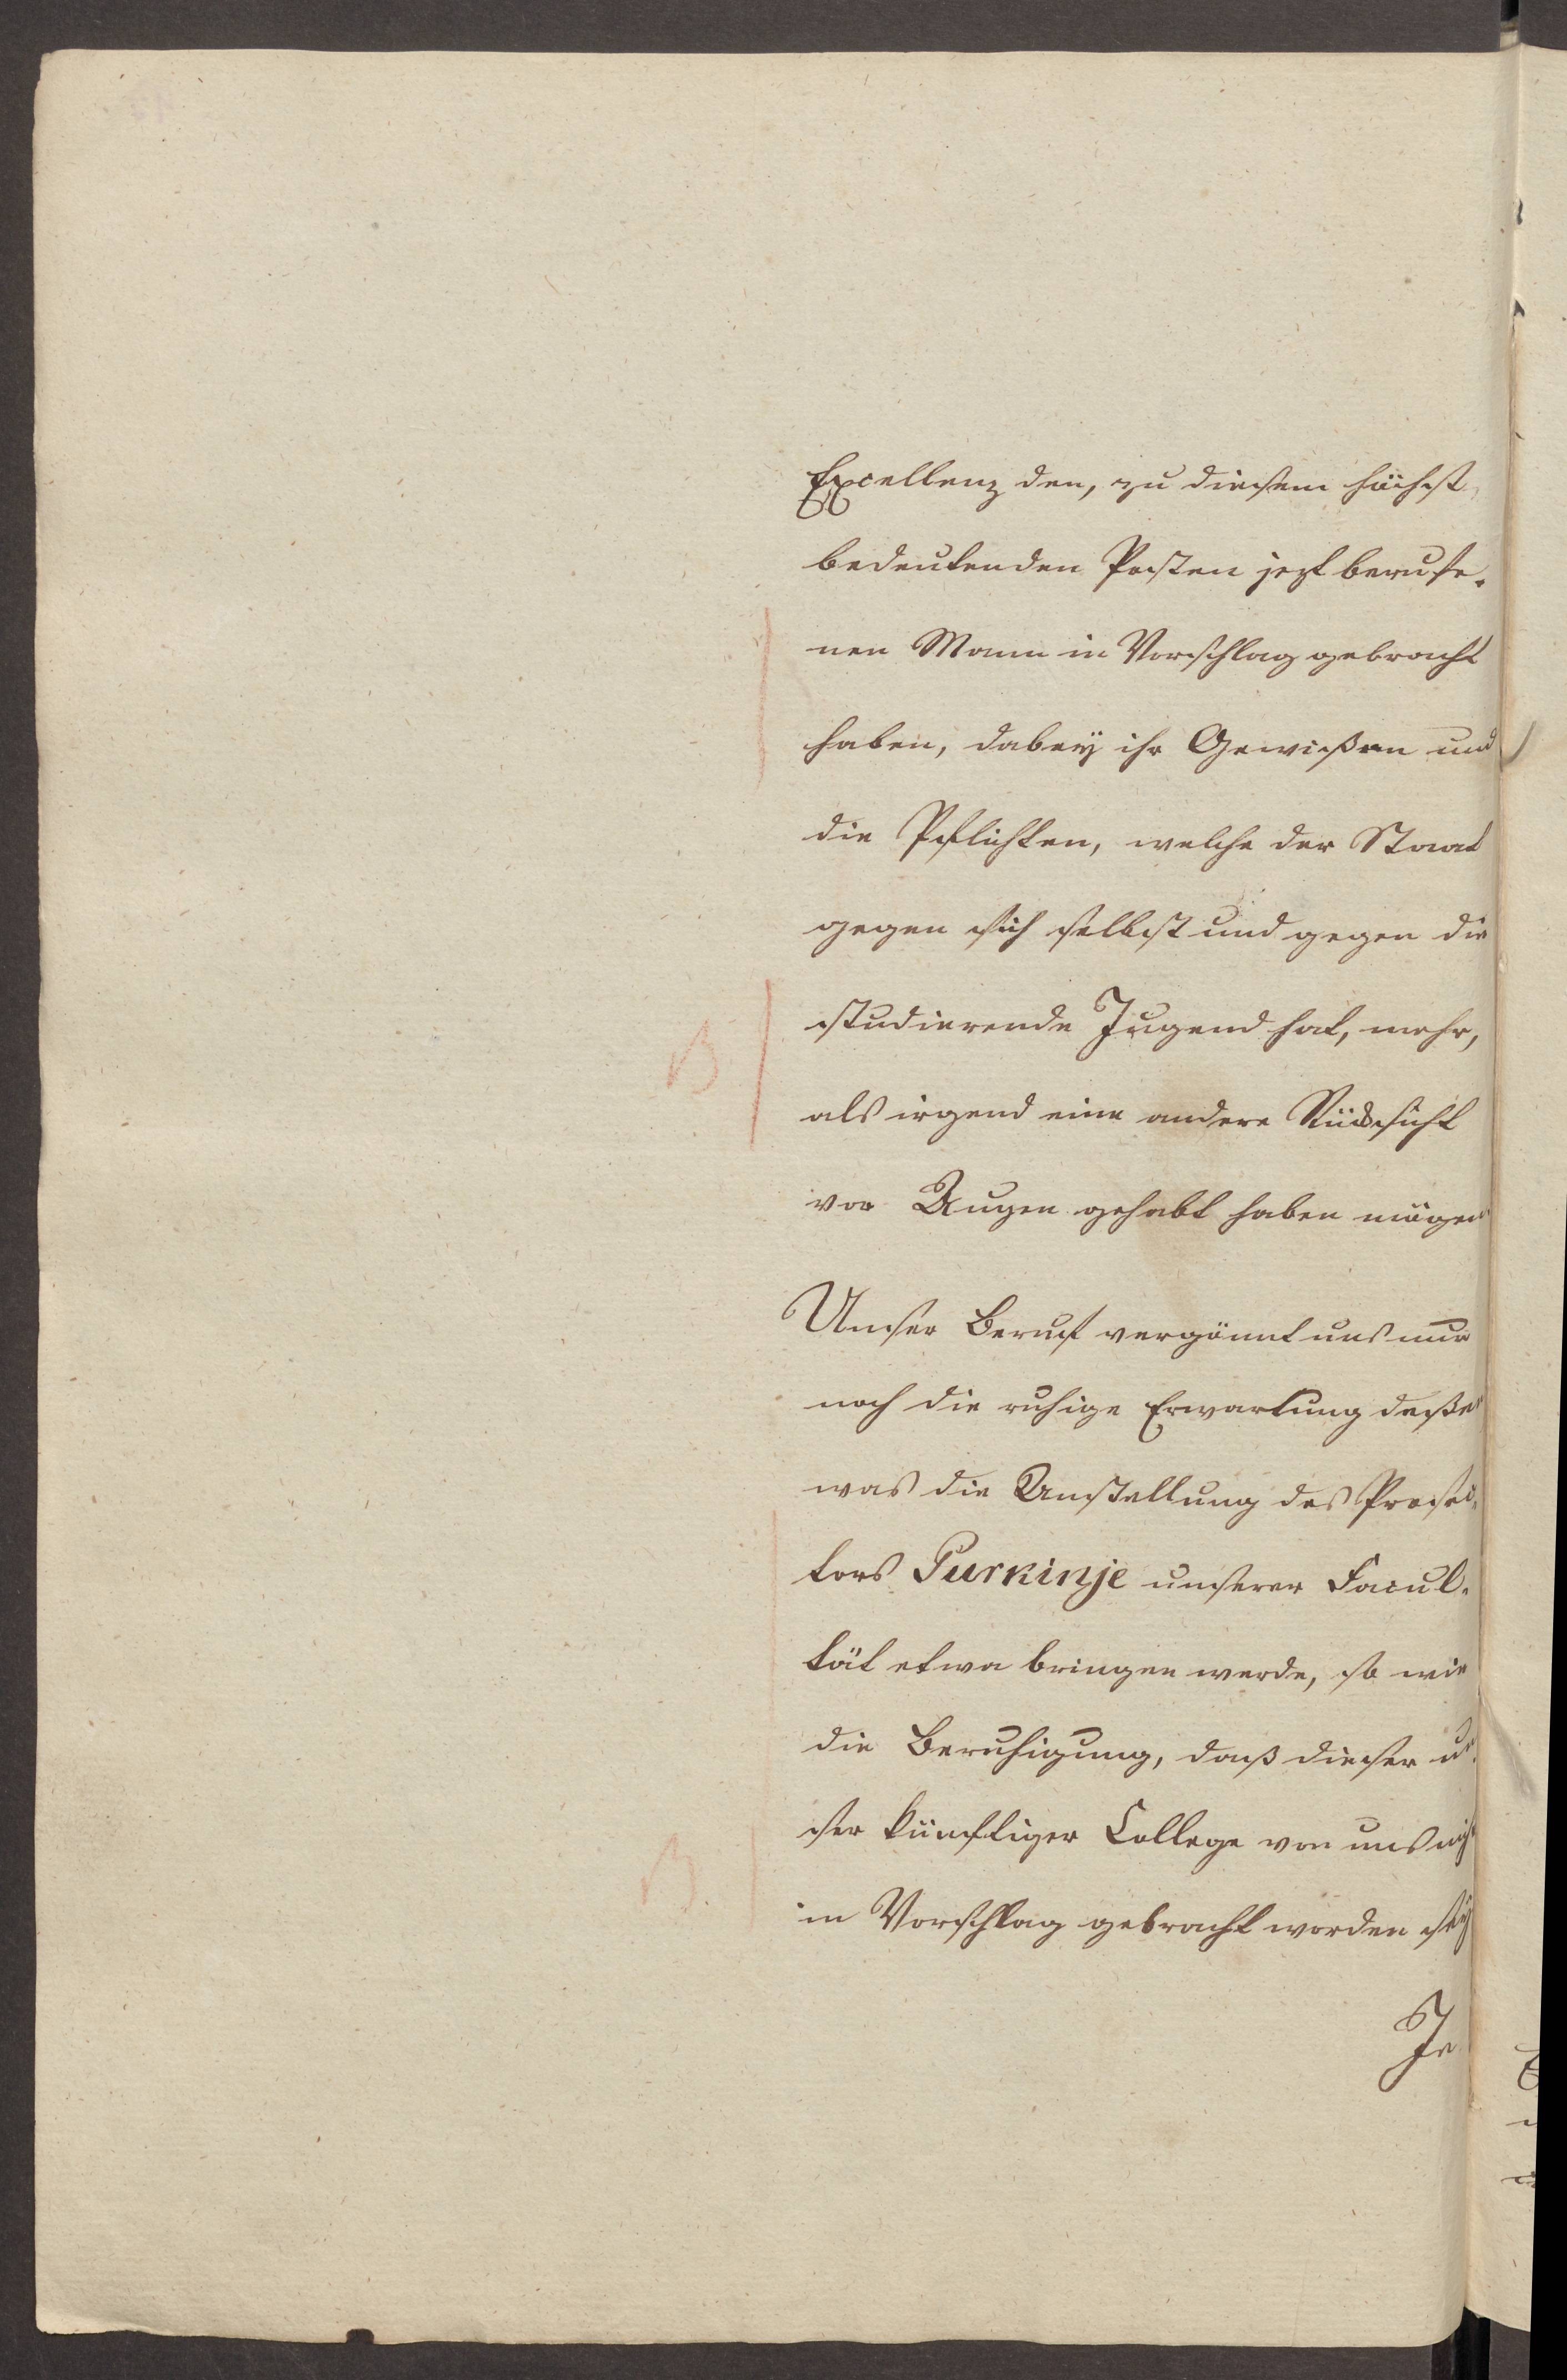 Excellenz den, zu diesem höchst
bedeutenden Posten jezt berufe-
nen Mann in Vorschlag gebracht
haben, dabey ihr Gewißen und
die Pflichten, welche der Staat
gegen sich selbst und gegen die
studierende Jugend hat, mehr,
als irgend eine andere Rücksicht
vor Augen gehabt haben mögen
Unser Beruf vergönnt uns nur
noch die ruhige Erwartung deßen
was die Anstellung des Prosec-
tors Purkinje unserer Facul-
tät etwa bringen werde, so wie
die Beruhigung, daß dieser un-
ser künftiger College von uns nicht
in Vorschlag gebracht worden sey
Je